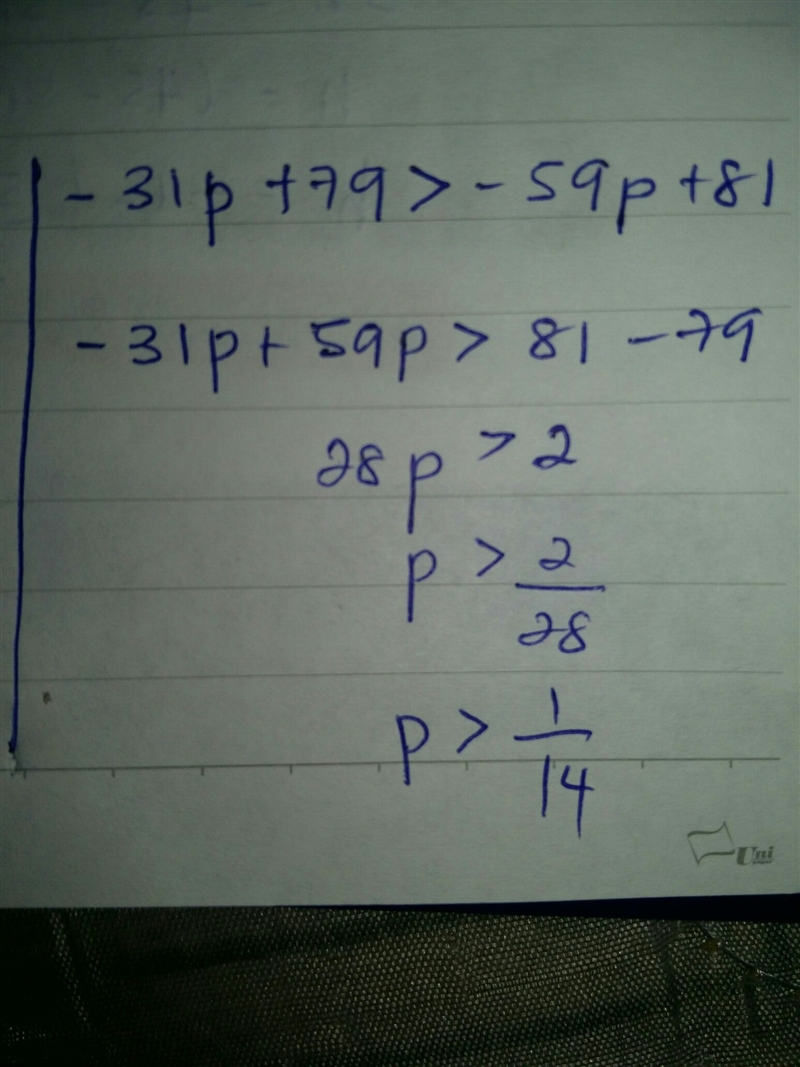 -31p+79>-59p+81
-31p+59p>81-79
28p>2
p>2/28
p>1/14
Uni